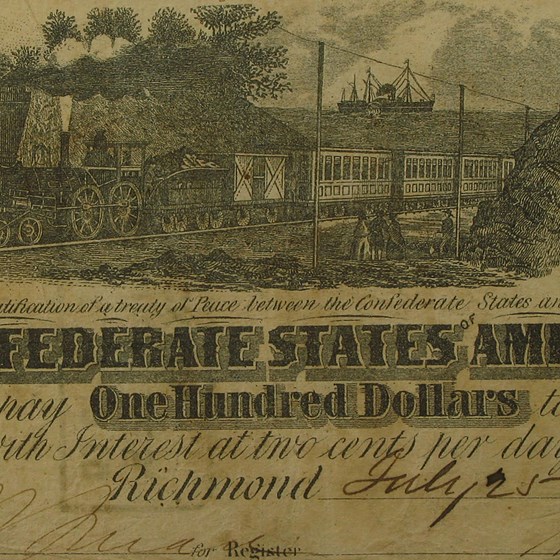 ratification of a treaty of Peace between the Confederate States
FEDERATE STATES OF AM
pay One Hundred Dollars
with Interest at two cents per da
Richmond July 25
for Register